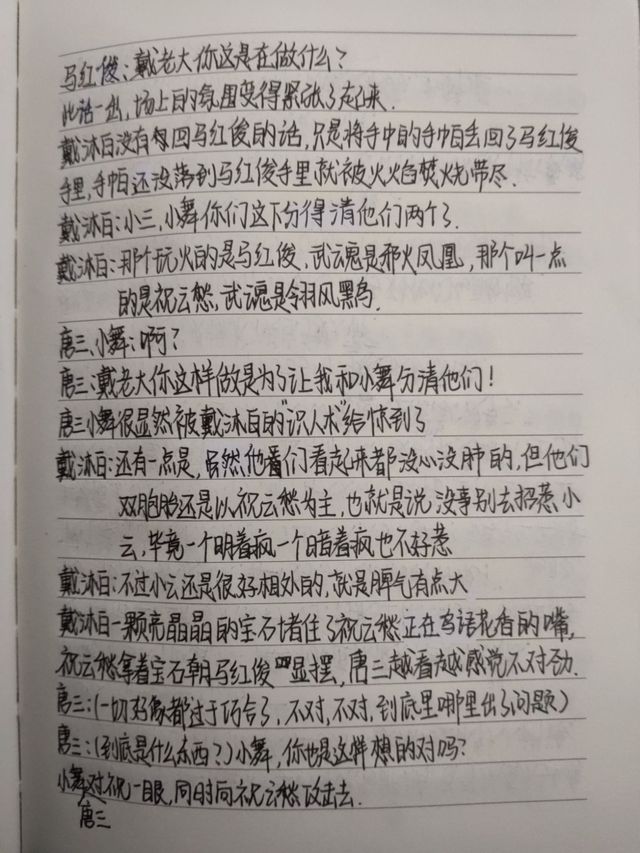 马红俊:戴老大你这是在做什么?
此话一出,场上的氛围变得紧张了起来.
戴沐白没有每回马红俊的话,只是将手中的手帕丢回了马红俊
手里,手帕还没落到马红俊手里就被火焰焚烧带尽.
戴沐白:小三,小舞你们这下分得清他们两个了.
戴沐白:那个玩火的是马红俊,武魂是邪火凤凰,那个叫一点
的是祝云愁,武魂是翎羽风黑鸟.
唐三、小舞:啊?
唐三:戴老大你这样做是为了让我和小舞分清他们!
唐三小舞很显然被戴沐白的“识人术”给惊到了
戴沐白:还有一点是,居然他们看起来都没心没肺的,但他们
双胞胎还是以祝云愁为主,也就是说没事别去招惹小
云,毕竟一个明着疯一个暗着疯也不好惹
戴沐白:不过小云还是很好相处的,就是脾气有点大
戴沐白一颗亮晶晶的宝石堵住了祝云愁正在鸟语花香的嘴,
祝云愁拿着宝石朝马红俊显摆,唐三越看越感觉不对劲.
唐三:(一切好像都过于巧合了,不对,不对,到底里哪里出了问题)
唐三:(到底是什么东西?)小舞,你也是这样想的对吗?
小舞对祝一眼,同时向祝云愁攻击去.
唐三